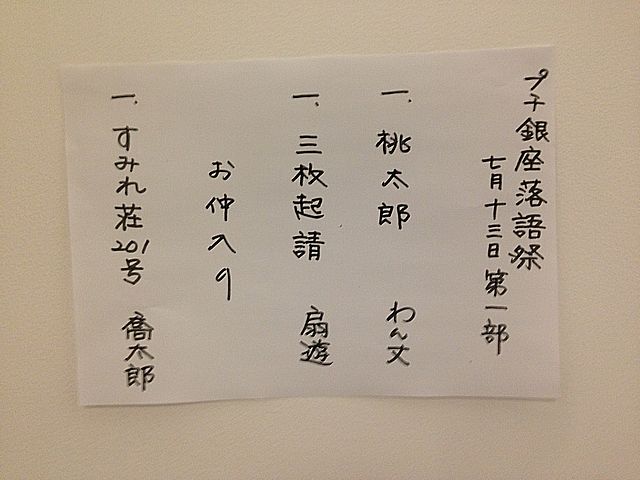 プチ銀座落語祭
七月十三日第一部
一、桃太郎 わん丈
一、三枚起請 扇遊
お仲入り
一、すみれ荘201号 喬太郎